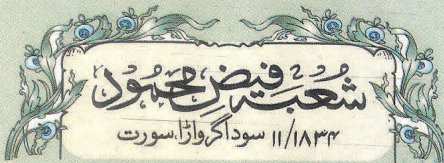 شعبہ فیضِ محمود
۱۱/۱۸۳۴ سوداگرواڑا، سورت